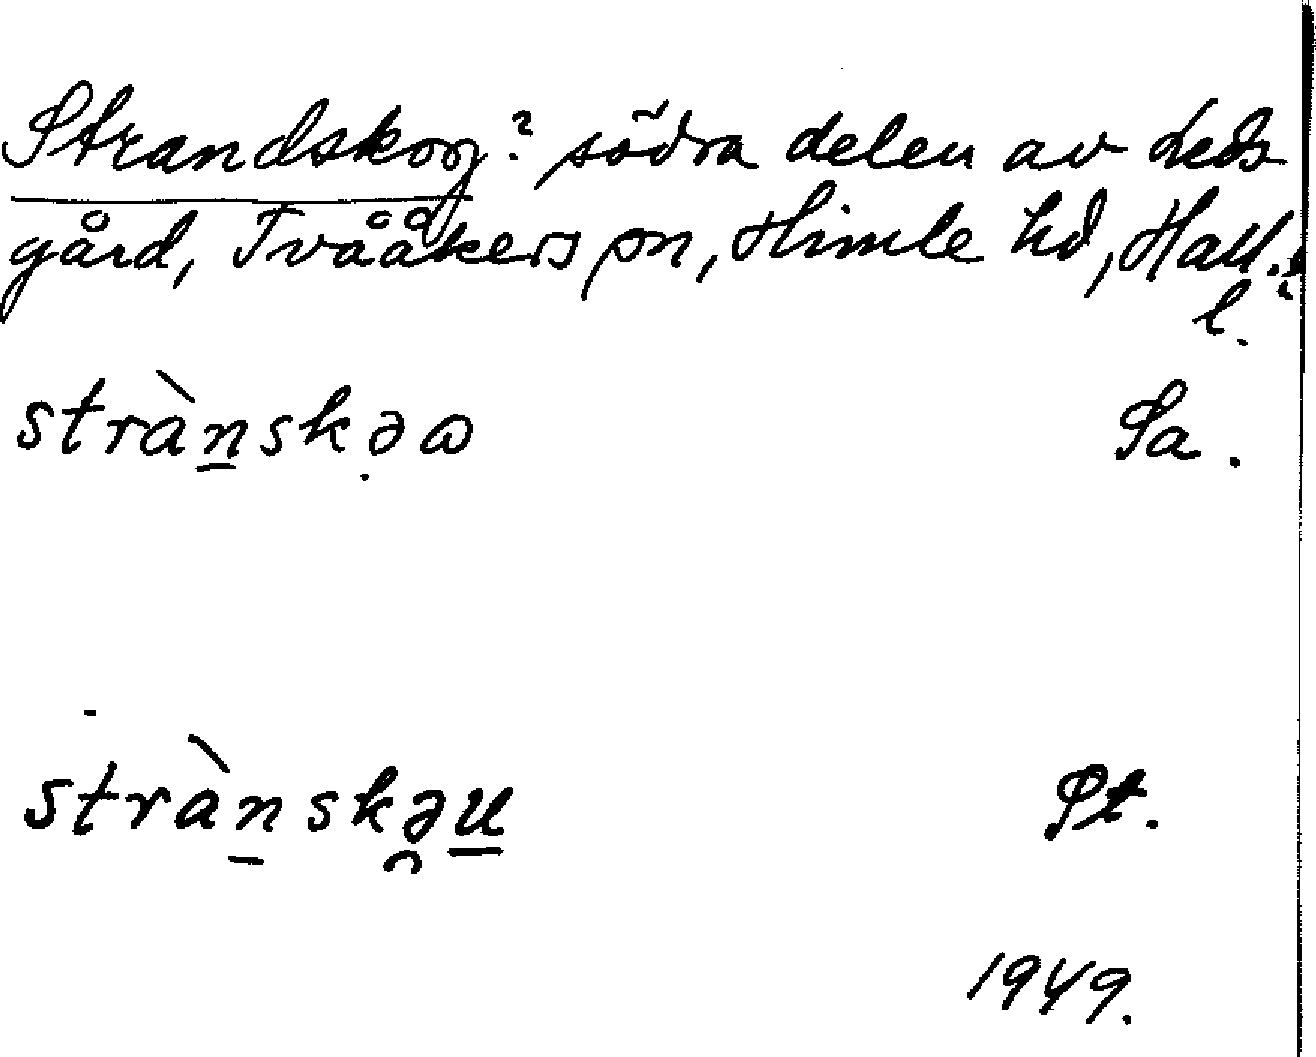 Strandskog? södra delen av Leds
gård, Tvååkers sn, Himle hd, Hall.
l.
strànskə Sa.
strànskəu Pt.
1949.